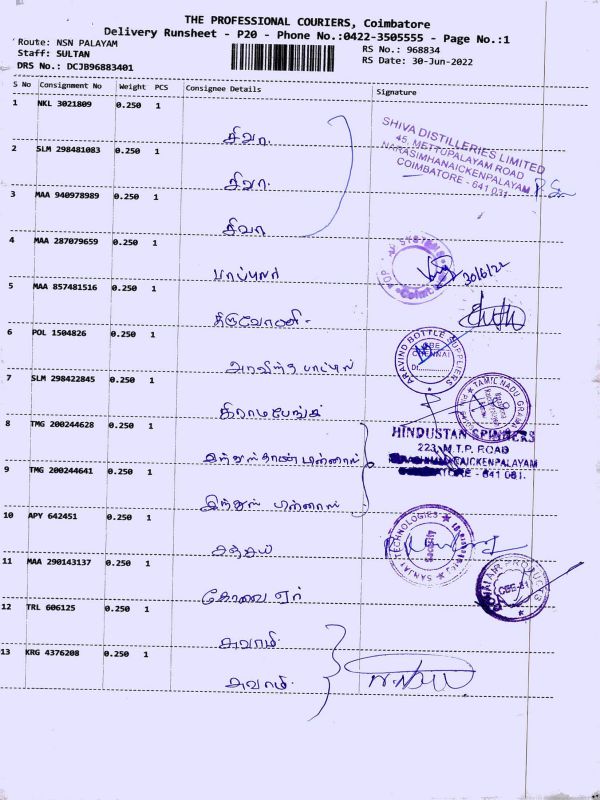 THE PROFESSIONAL COURIERS, Coimbatore
Delivery Runsheet - P20 - Phone No.:0422-3505555 - Page No.:1
Route: NSN PALAYAM
Staff: SULTAN
DRS No.: DCJB96883401
RS No.: 968834
RS Date: 30-Jun-2022
S No Consignment No Weight PCS Consignee Details Signature
1 NKL 3021809 0.250 1
சிவா.
SHIVA DISTILLERIES LIMITED
45, METTUPALAYAM ROAD
NARASIMHANAICKENPALAYAM
COIMBATORE - 641 031
2 SLM 298481083 0.250 1
சிவா.
3 MAA 940978989 0.250 1
சிவா
4 MAA 287079659 0.250 1
பாப்புலர்
30/6/22
5 MAA 857481516 0.250 1
6 POL 1504826 0.250 1
அரவிந்த பாட்டில்
ARAVIND BOTTLE SUPPLIERS
7 SLM 298422845 0.250 1
கிராம பேங்க்
TAMIL NADU GRAMA
8 TMG 200244628 0.250 1
HINDUSTAN SPINNERS
223, M.T.P. ROAD
9 TMG 200244641 0.250 1
10 APY 642451 0.250 1
SANJAY TECHNOLOGIES
Security
11 MAA 290143137 0.250 1
கோவை ஏர்
KOVAI AIR PRODUCTS
CBE-31
12 TRL 606125 0.250 1
சுவாமி.
13 KRG 4376208 0.250 1
சுவாமி.